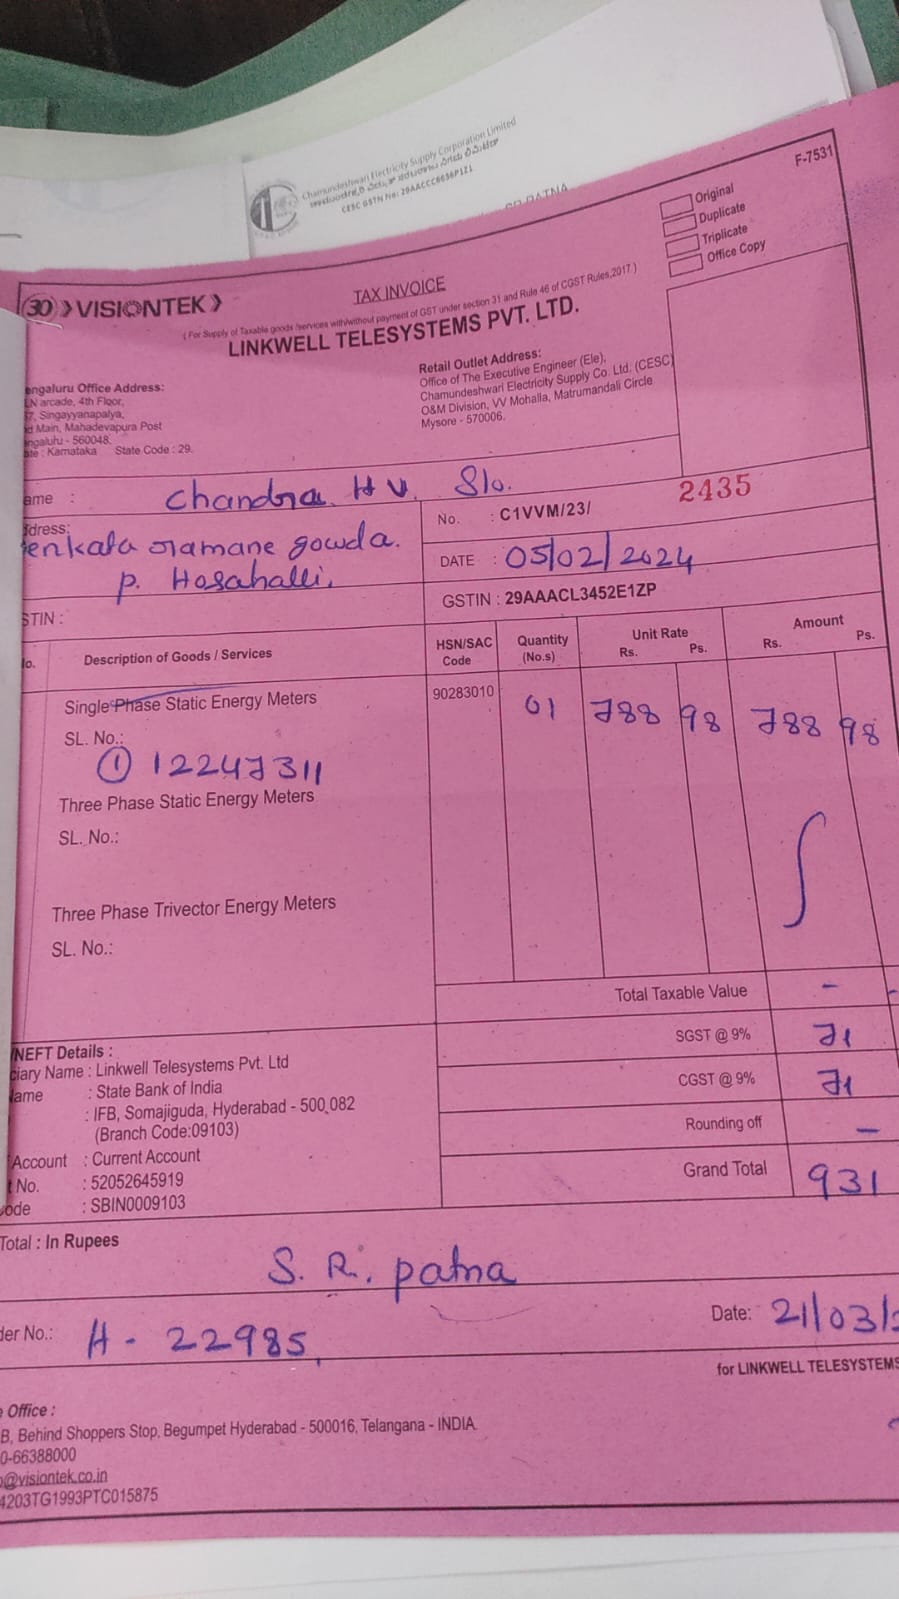 Chamundeshwari Electricity Supply Corporation Limited
CESC GSTN No: 29AACCC6636P1Z1
F-7531
Original
Duplicate
Triplicate
Office Copy
30 VISIONTEK
TAX INVOICE
( For Supply of Taxable goods /services with/without payment of GST under section 31 and Rule 46 of CGST Rules,2017.)
LINKWELL TELESYSTEMS PVT. LTD.
engaluru Office Address:
LN arcade, 4th Floor,
7, Singayyanapalya,
d Main, Mahadevapura Post
engaluru - 560048.
ate : Karnataka State Code : 29.
Retail Outlet Address:
Office of The Executive Engineer (Ele),
Chamundeshwari Electricity Supply Co. Ltd. (CESC)
O&M Division, VV Mohalla, Matrumandali Circle
Mysore - 570006.
ame : Chandra. H V. S/o.
dress:
enkata ramane gowda.
P. Hosahalli,
STIN :
No. : C1VVM/23/ 2435
DATE : 05/02/2024
GSTIN : 29AAACL3452E1ZP
lo. Description of Goods / Services HSN/SAC Code Quantity (No.s) Unit Rate Rs. Ps. Amount Rs. Ps.
Single Phase Static Energy Meters 90283010 01 788 98 788 98
SL. No.:
① 12247311
Three Phase Static Energy Meters
SL. No.:
Three Phase Trivector Energy Meters
SL. No.:
Total Taxable Value -
SGST @ 9% 71
CGST @ 9% 71
Rounding off -
Grand Total 931
/NEFT Details :
ciary Name : Linkwell Telesystems Pvt. Ltd
ame : State Bank of India
: IFB, Somajiguda, Hyderabad - 500 082
(Branch Code:09103)
Account : Current Account
t No. : 52052645919
ode : SBIN0009103
Total : In Rupees
S. R. Patna
der No.: H - 22985
Date: 21/03/2
for LINKWELL TELESYSTEMS
e Office :
B, Behind Shoppers Stop, Begumpet Hyderabad - 500016, Telangana - INDIA.
0-66388000
@visiontek.co.in
4203TG1993PTC015875